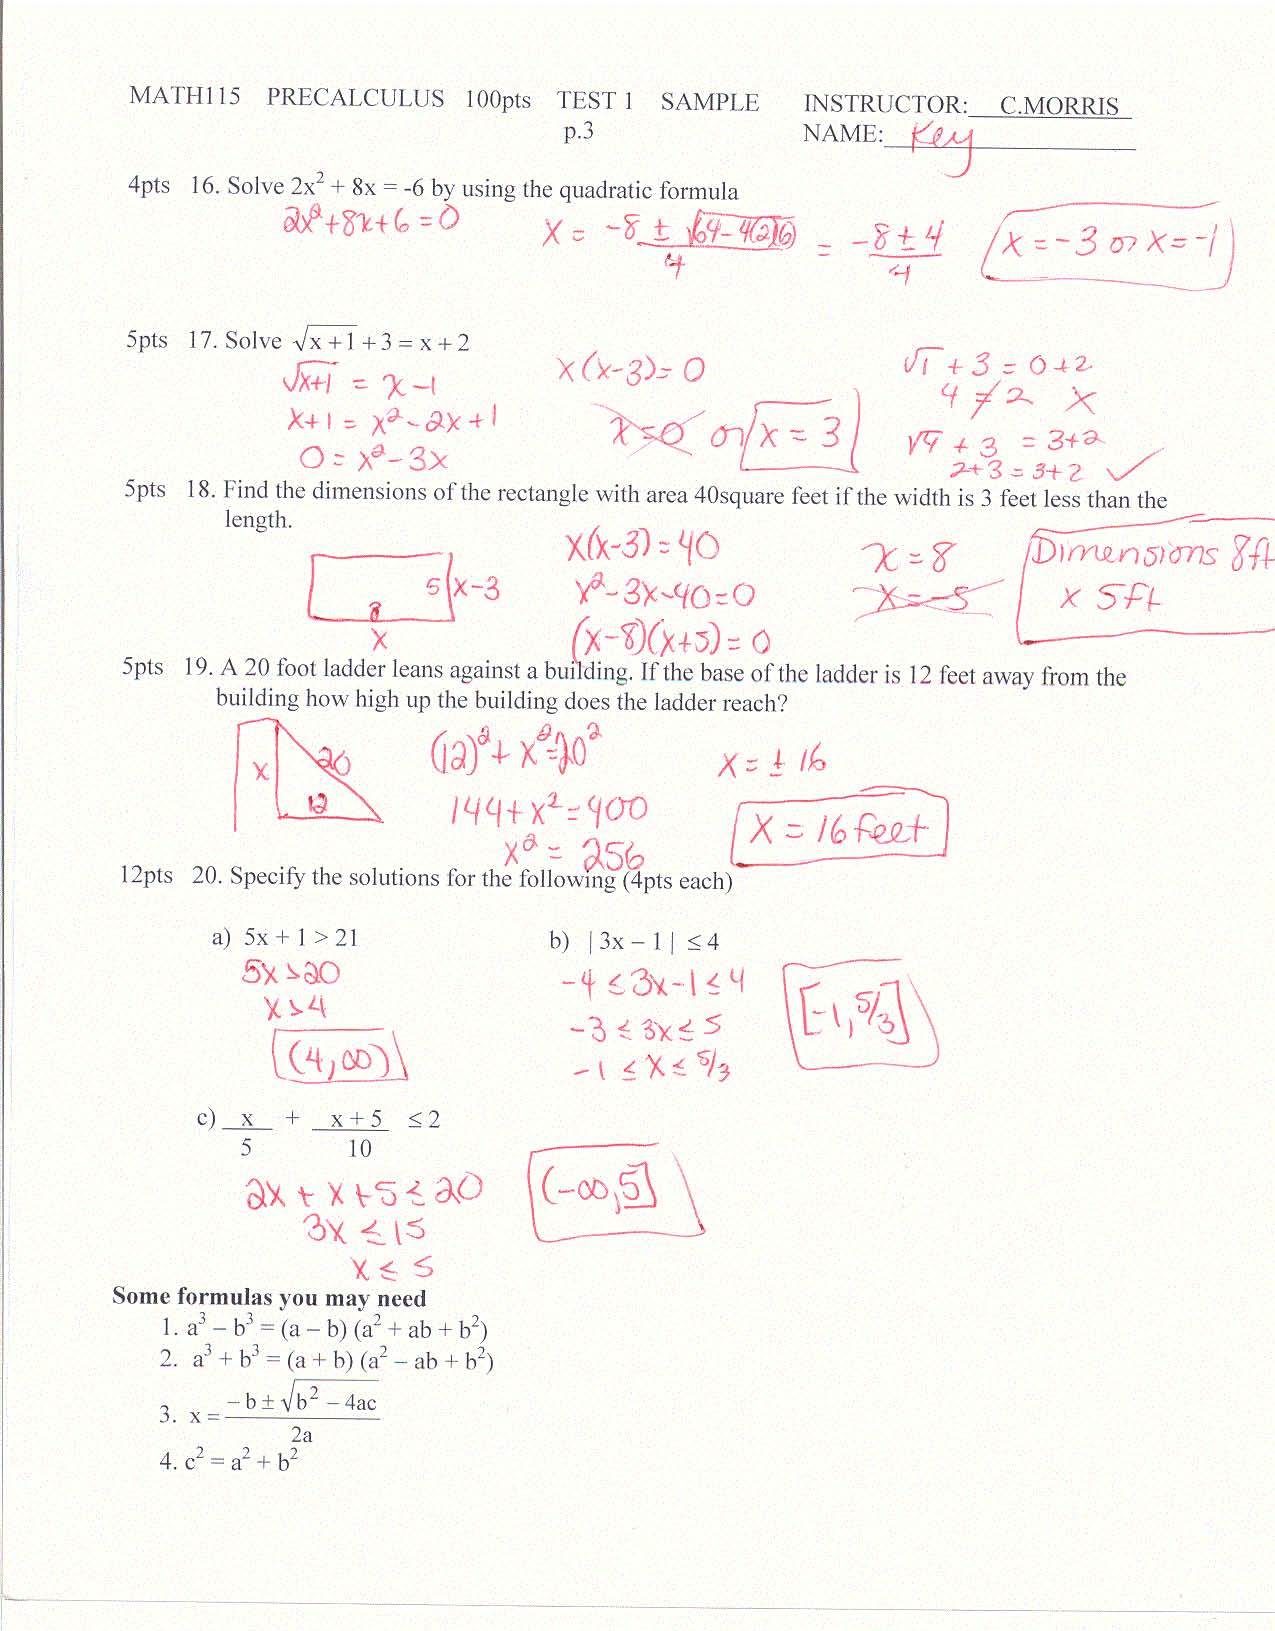 MATH115 PRECALCULUS 100pts TEST 1 SAMPLE INSTRUCTOR: C.MORRIS
p.3 NAME: Key
4pts 16. Solve 2x² + 8x = -6 by using the quadratic formula
2x²+8x+6=0 x = (-8 ± √(64-4(2)(6)))/4 = (-8±4)/4 x=-3 or x=-1
5pts 17. Solve √(x+1) + 3 = x + 2
√(x+1) = x-1 x(x-3)=0 √1 + 3 = 0+2
4 ≠ 2 X
x+1 = x²-2x+1 x=0 or x=3 √4 + 3 = 3+2
0 = x²-3x 2+3 = 3+2 ✓
5pts 18. Find the dimensions of the rectangle with area 40square feet if the width is 3 feet less than the
length.
x(x-3)=40 x=8 Dimensions 8ft
5 x-3 x²-3x-40=0 x=-5 x 5ft
8
x (x-8)(x+5)=0
5pts 19. A 20 foot ladder leans against a building. If the base of the ladder is 12 feet away from the
building how high up the building does the ladder reach?
x 20 (12)²+x²=20² x=±16
12 144+x²=400 x = 16 feet
x² = 256
12pts 20. Specify the solutions for the following (4pts each)
a) 5x + 1 > 21 b) | 3x – 1 | ≤ 4
5x>20 -4 ≤ 3x-1 ≤ 4 [-1, 5/3]
x>4 -3 ≤ 3x ≤ 5
(4,∞) -1 ≤ x ≤ 5/3
c) x/5 + (x + 5)/10 ≤ 2
2x + x+5 ≤ 20 (-∞,5]
3x ≤ 15
x ≤ 5
Some formulas you may need
1. a³ – b³ = (a – b) (a² + ab + b²)
2. a³ + b³ = (a + b) (a² – ab + b²)
3. x = (–b ± √(b² – 4ac))/2a
4. c² = a² + b²